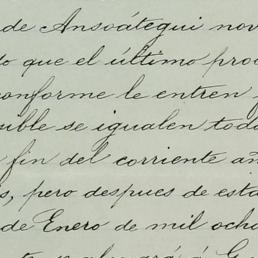 de Ansoátegui nov
o que el último pro
conforme le entren
sible se igualen toda
fin del corriente añ
s, pero despues de esta
de Enero de mil ocho